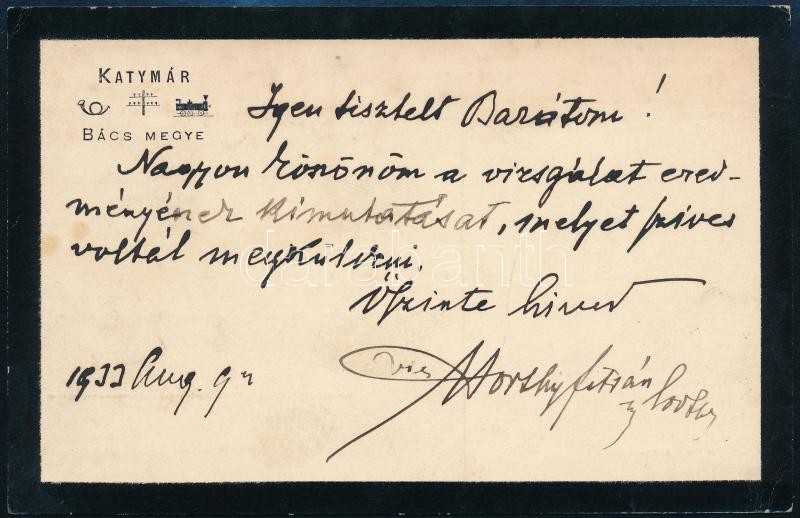 KATYMÁR
BÁCS MEGYE
Igen tisztelt Barátom!
Nagyon köszönöm a vizsgálat ered-
ményének kimutatását, melyet szives
voltál megküldeni.
Őszinte hived
1933 Aug. 9
darabanth